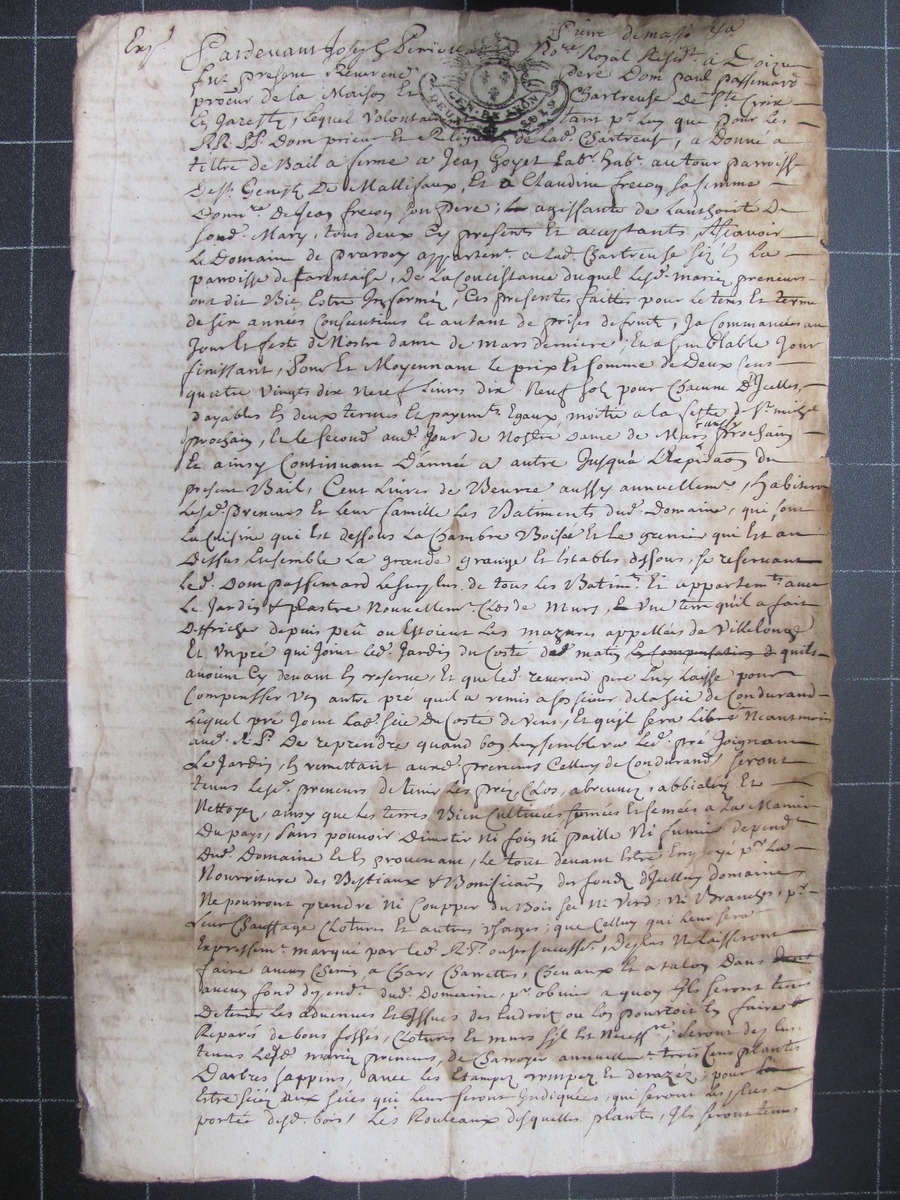 Pardevant Joseph No.re Royal Resid.t a
fut present Reverend pere Dom paul passemard
procur de la Maison Et Chartreuse De S.te Croix
En Jarestz, Lequel volontairement tant p.r Luy que pour Les
RR. PP. Dom prieur Et Religieux de lad. Chartreuse, a Donné a
tiltre de Bail a ferme a Jean Goyet Lab.r hab. autour parroisse
De S.t Genest De Mallifaux, Et a Claudine frecon sa femme
de Jean frecon son pere; agissante de Lauthorité De
sond. Mary, tous deux Cy presents Et acceptants, Ascavoir
Le Domaine de appartent. a lad. Chartreuse Size En La
parroisse de tarentaise, De La Consistance duquel Lesd. mariez preneurs
ont dit Bien Estre Informéz, Ces presentes faittes pour le tems Et terme
de six années Consecutives Et autant de prises de fruits, Ja Commancées au
Jour Et feste de Nostre dame de mars derniere, Et a semblable Jour
finissant, Pour Et Moyennant Le prix Et somme de Deux Cens
quatre vingts dix Neuf Livres dix Neuf sols pour Chacune D'Icelles,
payables En deux termes Et payem.ts Egaux, moitié a la feste de S.t
prochain, Et le second aud. Jour de Nostre Dame de Mars aussy prochain
Et ainsy Continuant D'année a autre Jusqu'a L'Expiraon du
present Bail, Cent Livres de Beurre aussy annuellem.t, habiteront
Lesd. preneurs Et leur famille Les Batiments dud. Domaine, qui sont
La Cuisine qui Est dessous La Chambre Boisée Et Le grenier qui Est au
Dessus Ensemble La grande grange Et Estables dessous, se reservant
Led. Dom Passemard Le surplus de tous Les Batim.ts Et appartem.ts avec
Le Jardin & plastre Nouvellem.t Clos de Murs, Vne terre qu'il a fait
Deffriche depuis peu ou Estoient Les mazures appellées de Villelonge
Et Vn pré qui Joint Led. Jardin du Costé de matin, qu'ils
avoient Cy devant En reserve, Et que led. reverend pere Luy Laisse pour
Compenser Vn autre pré quil a remis de la scie de Condurand
Lequel pré Joint Lad. scie du Costé de vent, Et qu'il sera Libre Neantmoins
aud. R.P. De reprendre quand bon luy semblera Led. pré Joignant
Le Jardin, En remettant auxd. preneurs Celluy de Condurand, seront
tenus Lesd. preneurs de tenir Les préz Clos, abreuvez, Et
Nettoyez, ainsy que Les terres Bien Cultivées fumées Et semées a La Maniere
Du pays, sans pouvoir Divertir Ni foin Ni paille Ni fumier depend.t
Dud. Domaine Et En provenant, Le tout devant Estre Employé p.r La
Nourriture des Bestiaux & Bonificaon des fonds d'Icelluy domaine
Ne pourront prendre Ni Coupper du Bois sec Ni Verd, Ni Branches, p.r
Leur Chauffage Clotures Et autres Vsages, que Celluy qui Leur sera
Expressem.t marqué par led. R.P. ou ses successrs, De plus Ne Laisseront
faire aucun Chemin a Chars Charrettes, Chevaux Et a talon Dans
aucun fond depend.t dud. Domaine, p.r obvier a quoy Ils seront tenus
Les advenues Et Issues des Endroits ou L'on pourroit En faire
Reparés de bons fossés, Clotures Et murs s'il Est Necess.re, seront de plus
tenus Lesd. mariez preneurs, de Charroyer annuellem.t trois Cens plantes
D'arbres sappins, avec Les Et pour
Estre sciez aux scies qui Leur seront Indiquées, qui seront Les plus a
portée desd. bois, Les Rouleaux desquelles plantes, Ils seront tenus